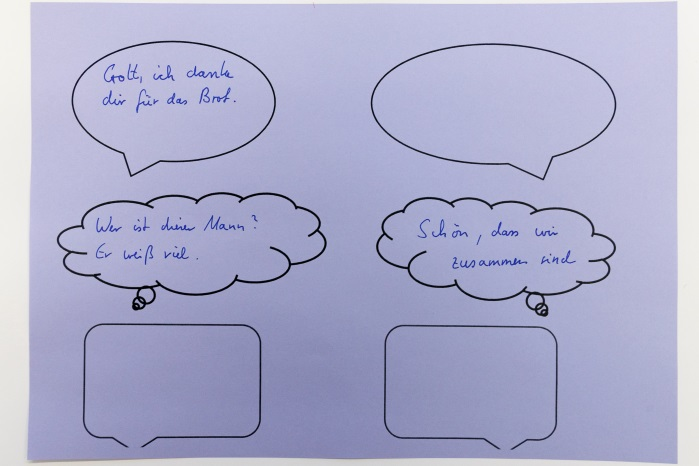 Gott, ich danke
dir für das Brot.
Wer ist dieser Mann?
Er weiß viel.
Schön, dass wir
zusammen sind